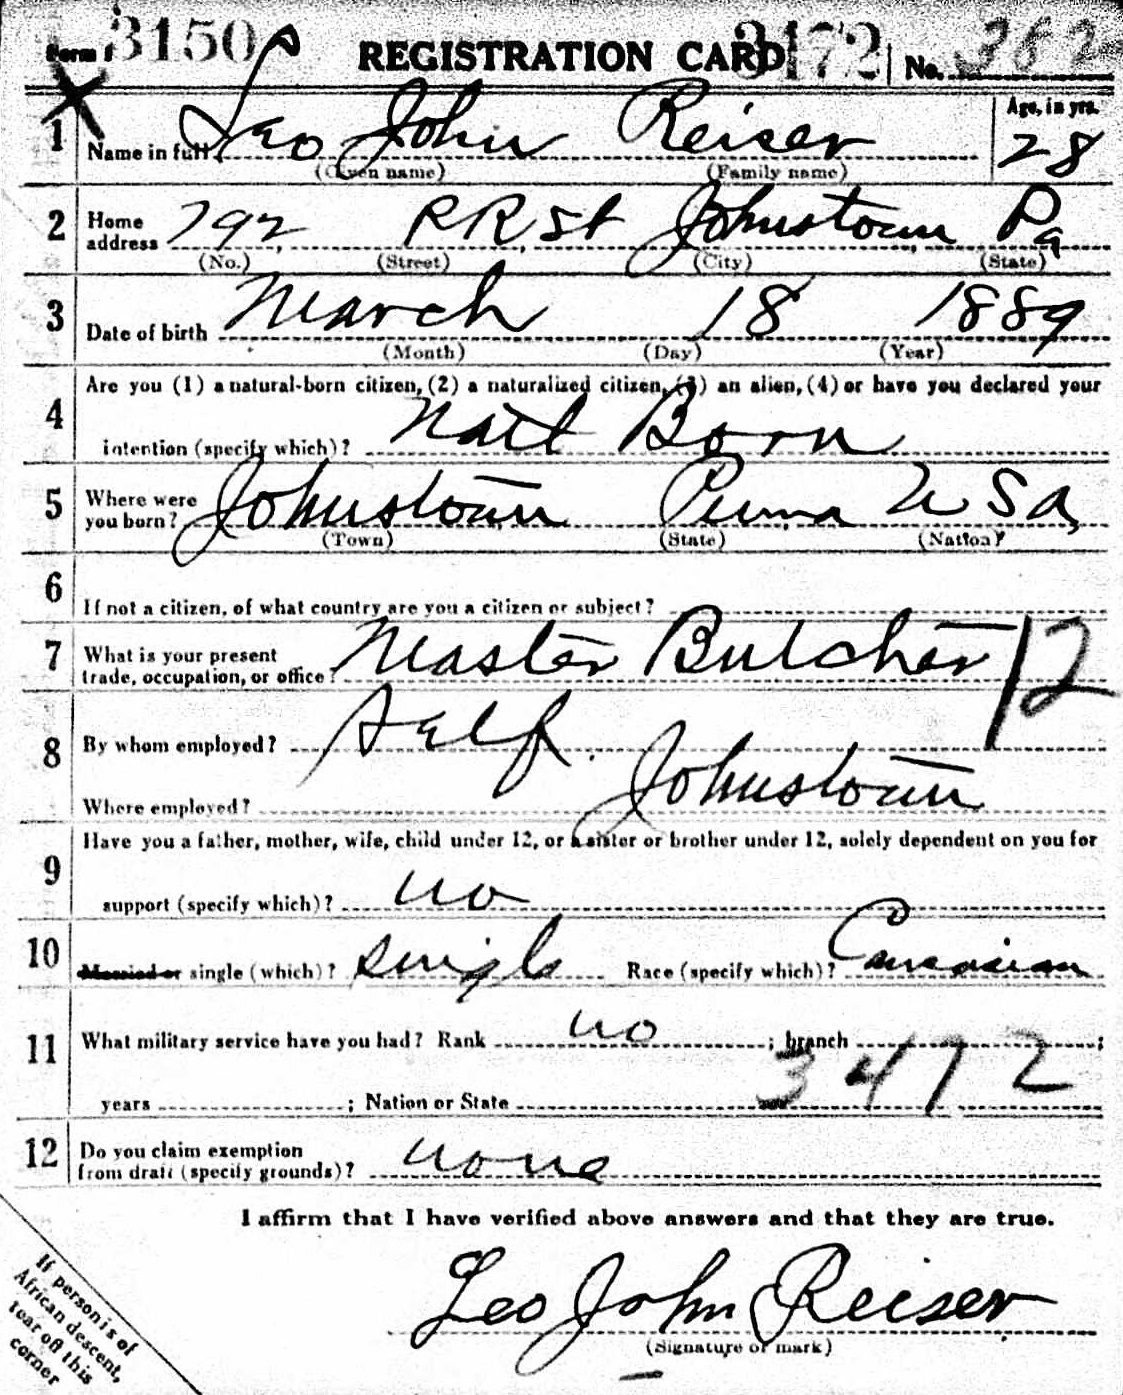 Form 1 3150 REGISTRATION CARD 3172 No. 362
X
1 Name in full Leo John Reiser Age, in yrs. 28
(Given name) (Family name)
2 Home address 792 RR St Johnstown Pa
(No.) (Street) (City) (State)
3 Date of birth March 18 1889
(Month) (Day) (Year)
4 Are you (1) a natural-born citizen, (2) a naturalized citizen, (3) an alien, (4) or have you declared your
intention (specify which)? Natl Born
5 Where were you born? Johnstown Penna USA
(Town) (State) (Nation)
6 If not a citizen, of what country are you a citizen or subject?
7 What is your present trade, occupation, or office? Master Butcher 12
8 By whom employed? Self.
Where employed? Johnstown
9 Have you a father, mother, wife, child under 12, or a sister or brother under 12, solely dependent on you for
support (specify which)? no
10 Married or single (which)? Single Race (specify which)? Caucasian
11 What military service have you had? Rank no ; branch ;
3472
years ; Nation or State
12 Do you claim exemption from draft (specify grounds)? none
I affirm that I have verified above answers and that they are true.
Leo John Reiser
(Signature or mark)
If person is of
African descent,
tear off this
corner